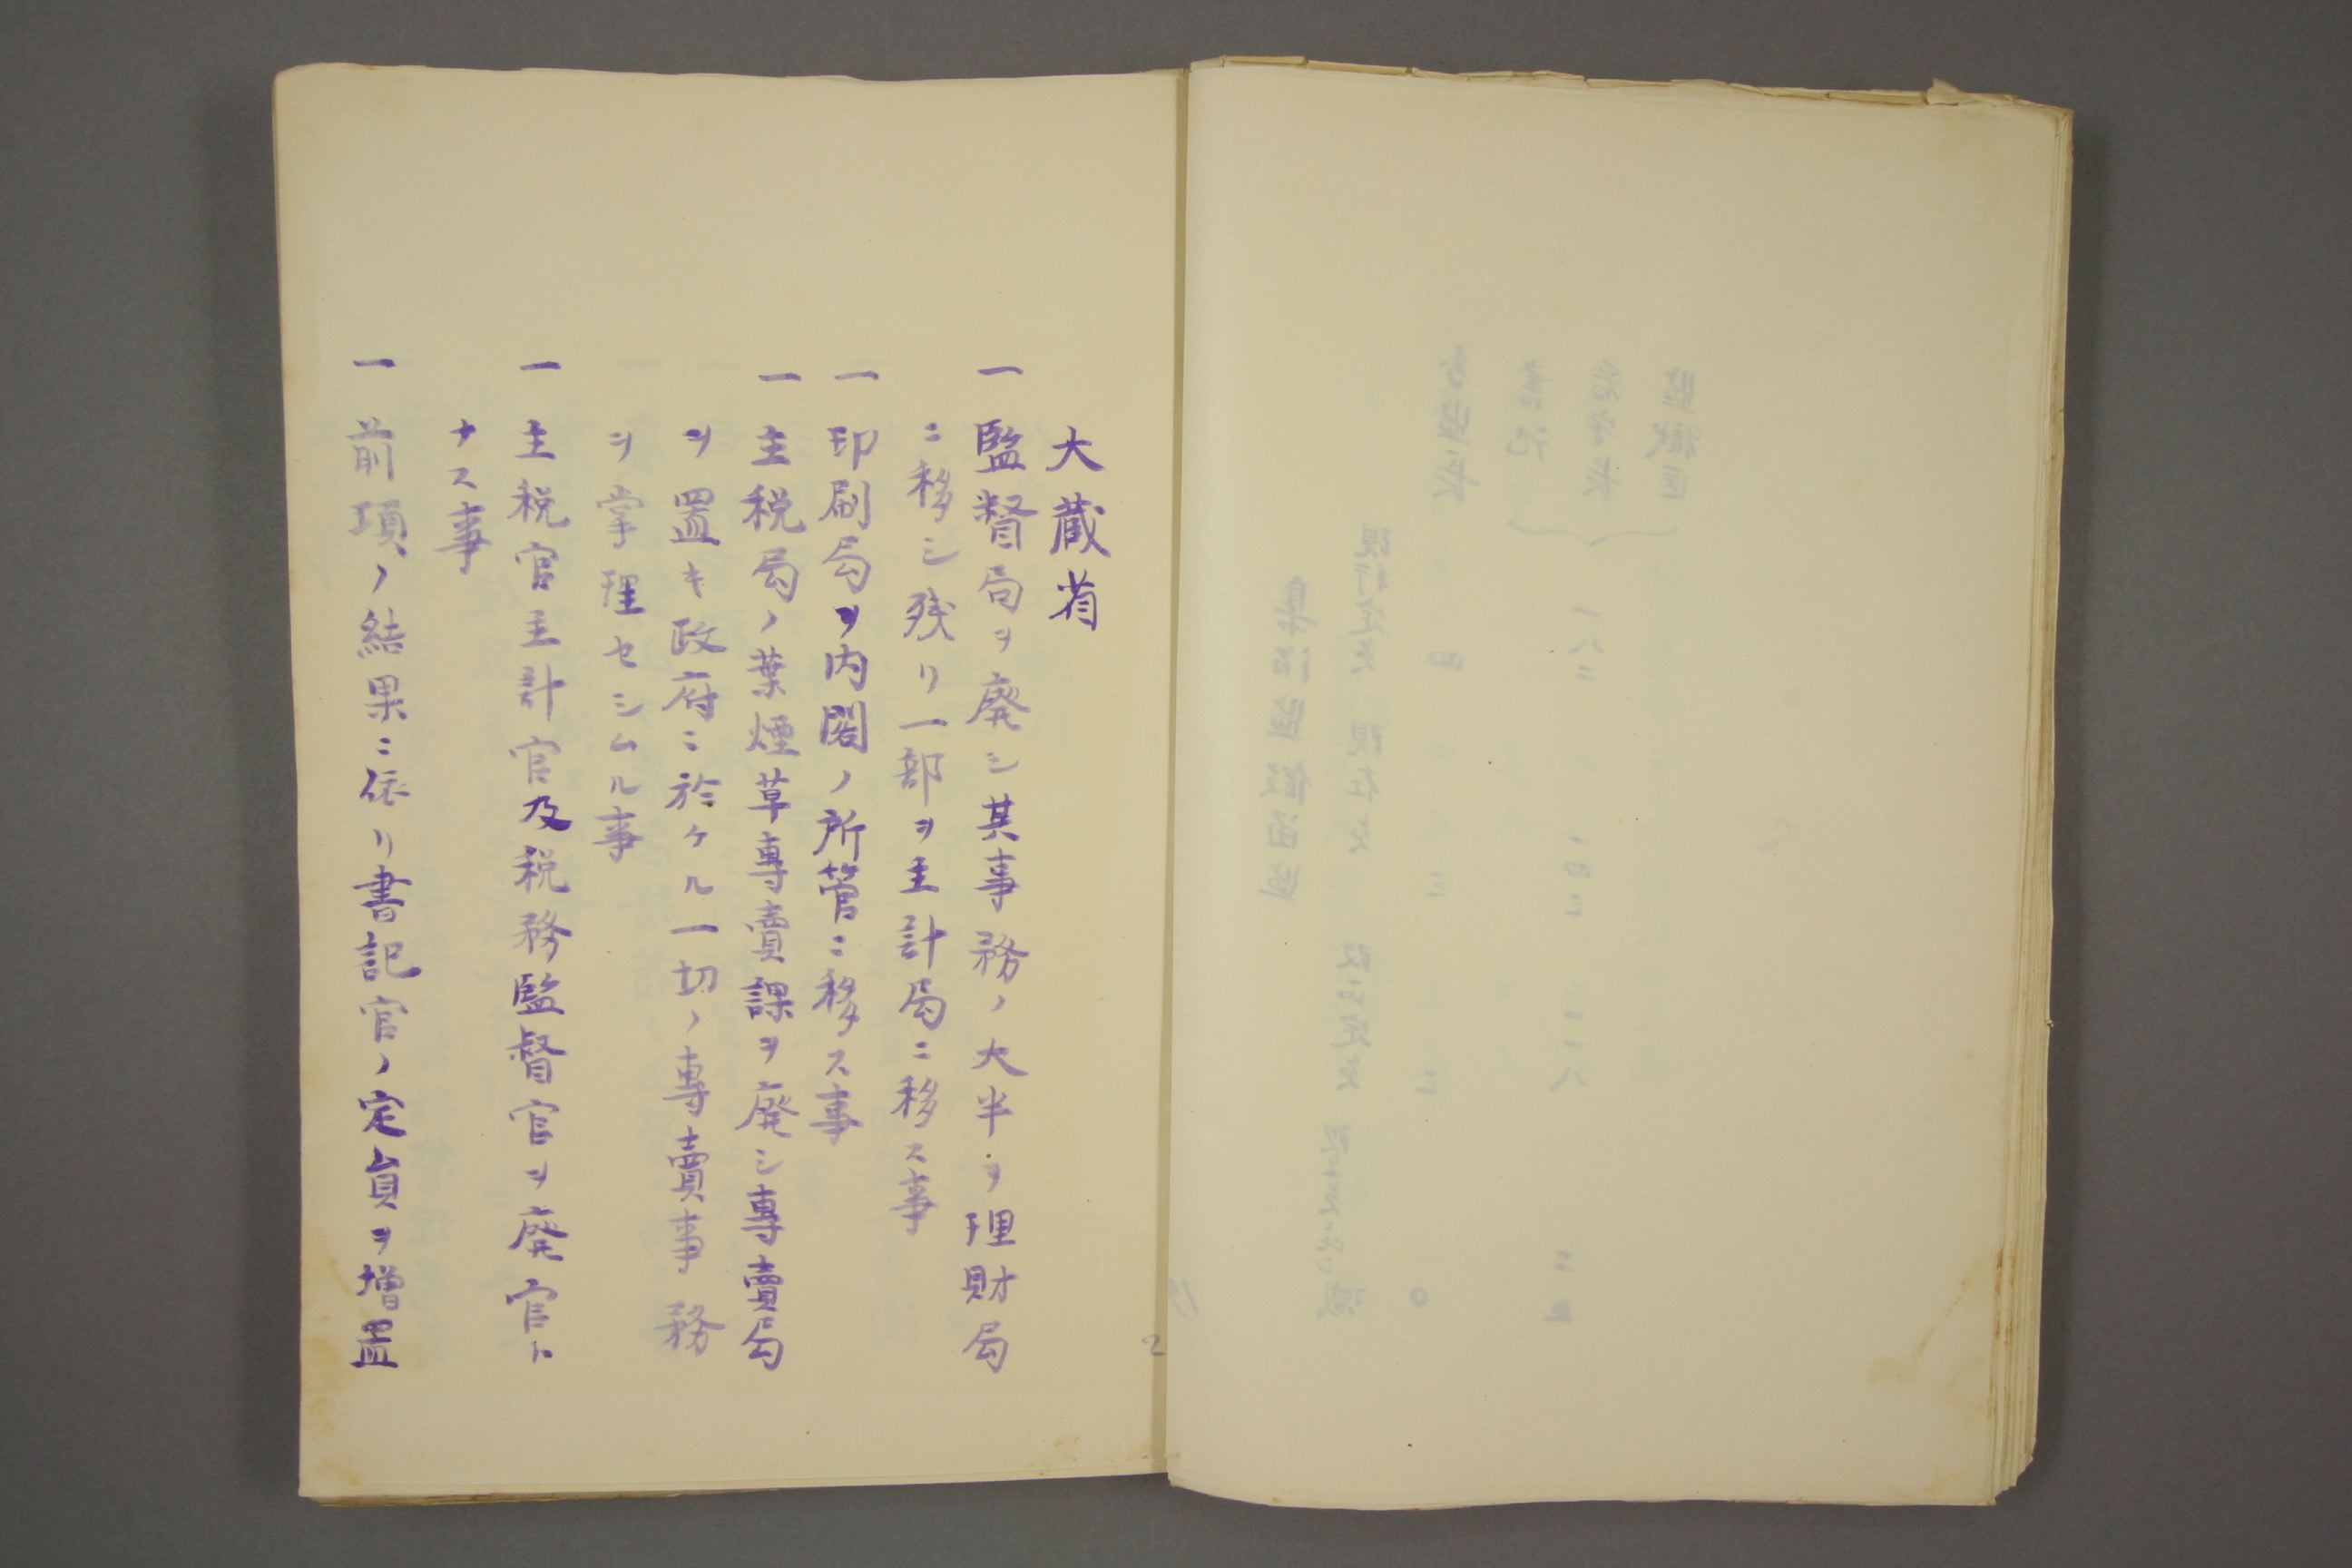 大蔵省
一 監督局ヲ廃シ其事務ノ大半ヲ理財局
ニ移シ残リ一部ヲ主計局ニ移ス事
一 印刷局ヲ内閣ノ所管ニ移ス事
一 主税局ノ葉煙草専賣課ヲ廃シ専賣局
ヲ置キ政府ニ於ケル一切ノ専賣事務
ヲ掌理セシムル事
一 主税官主計官及税務監督官ヲ廃官ト
ナス事
一 前項ノ結果ニ依リ書記官ノ定員ヲ増置
2